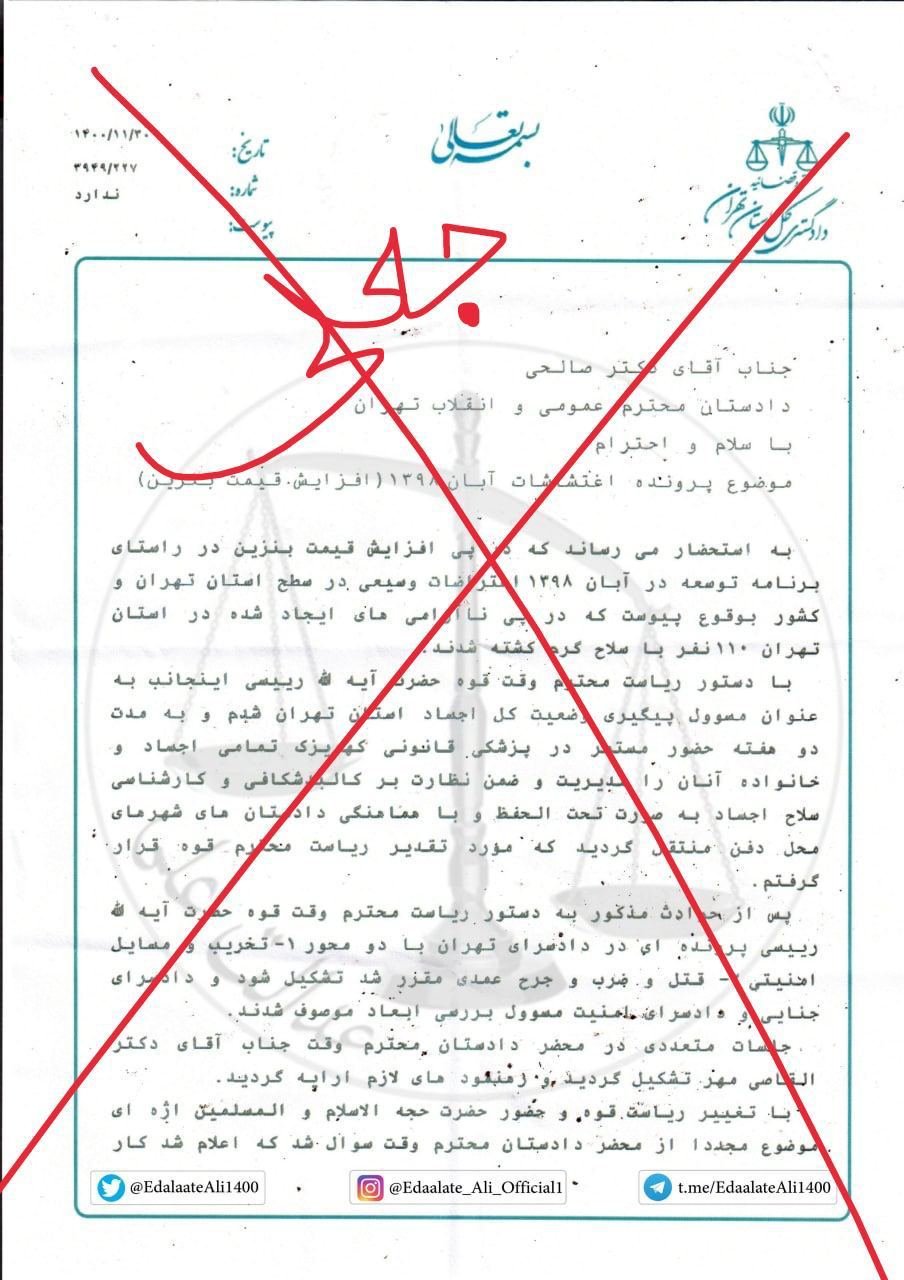 بسمه تعالی
قوه قضائیه
دادگستری کل استان تهران
تاریخ: ۱۴۰۰/۱۱/۳۰
شماره: ۳۹۴۹/۲۲۷
پیوست: ندارد
جعلی
جناب آقای دکتر صالحی
دادستان محترم عمومی و انقلاب تهران
با سلام و احترام
موضوع پرونده اغتشاشات آبان ۱۳۹۸(افزایش قیمت بنزین)
به استحضار می رساند که در پی افزایش قیمت بنزین در راستای
برنامه توسعه در آبان ۱۳۹۸ اعتراضات وسیعی در سطح استان تهران و
کشور بوقوع پیوست که در پی ناآرامی های ایجاد شده در استان
تهران ۱۱۰نفر با سلاح گرم کشته شدند.
با دستور ریاست محترم وقت قوه حضرت آیه الله رییسی اینجانب به
عنوان مسوول پیگیری وضعیت کل اجساد استان تهران شدم و به مدت
دو هفته حضور مستمر در پزشکی قانونی کهریزک تمامی اجساد و
خانواده آنان را مدیریت و ضمن نظارت بر کالبدشکافی و کارشناسی
سلاح اجساد به صورت تحت الحفظ و با هماهنگی دادستان های شهرهای
محل دفن منتقل گردید که مورد تقدیر ریاست محترم قوه قرار
گرفتم.
پس از حوادث مذکور به دستور ریاست محترم وقت قوه حضرت آیه الله
رییسی پرونده ای در دادسرای تهران با دو محور ۱-تخریب و مسایل
امنیتی ۲- قتل و ضرب و جرح عمدی مقرر شد تشکیل شود و دادسرای
جنایی و دادسرای امنیت مسوول بررسی ابعاد موصوف شدند.
جلسات متعددی در محضر دادستان محترم وقت جناب آقای دکتر
القاصی مهر تشکیل گردید و رهنمود های لازم ارایه گردید.
با تغییر ریاست قوه و حضور حضرت حجه الاسلام و المسلمین اژه ای
موضوع مجددا از محضر دادستان محترم وقت سوال شد که اعلام شد کار
عدالت علی
@EdalaateAli1400
@Edaalate_Ali_Official1
t.me/EdaalateAli1400